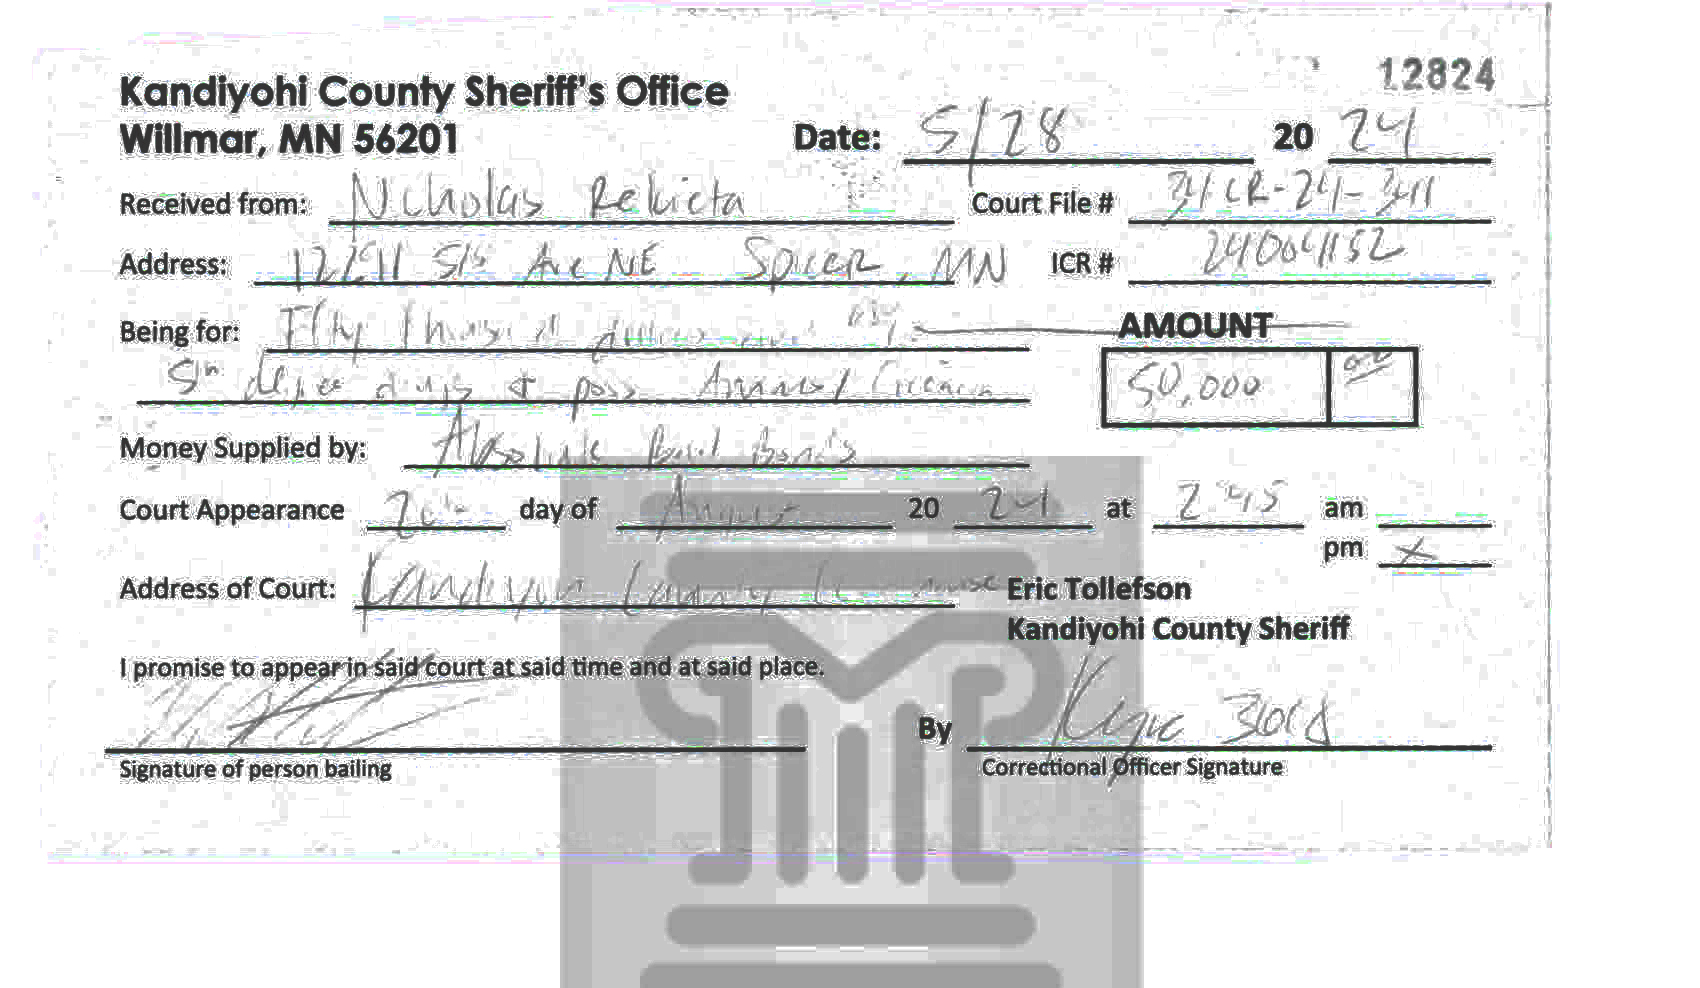 12824
Kandiyohi County Sheriff's Office
Willmar, MN 56201 Date: 5/28 20 24
Received from: Nicholas Rekieta Court File # 34CR-24-341
Address: Ave NE Spicer, MN ICR # 24004152
Being for: Fifty Thousand AMOUNT
5th degree drugs & poss Ammo/ 50,000 00
Money Supplied by: Absolute Bail Bonds
Court Appearance day of August 20 24 at 2:45 am
pm X
Address of Court: Kandiyohi County Courthouse Eric Tollefson
Kandiyohi County Sheriff
I promise to appear in said court at said time and at said place.
By
Signature of person bailing Correctional Officer Signature